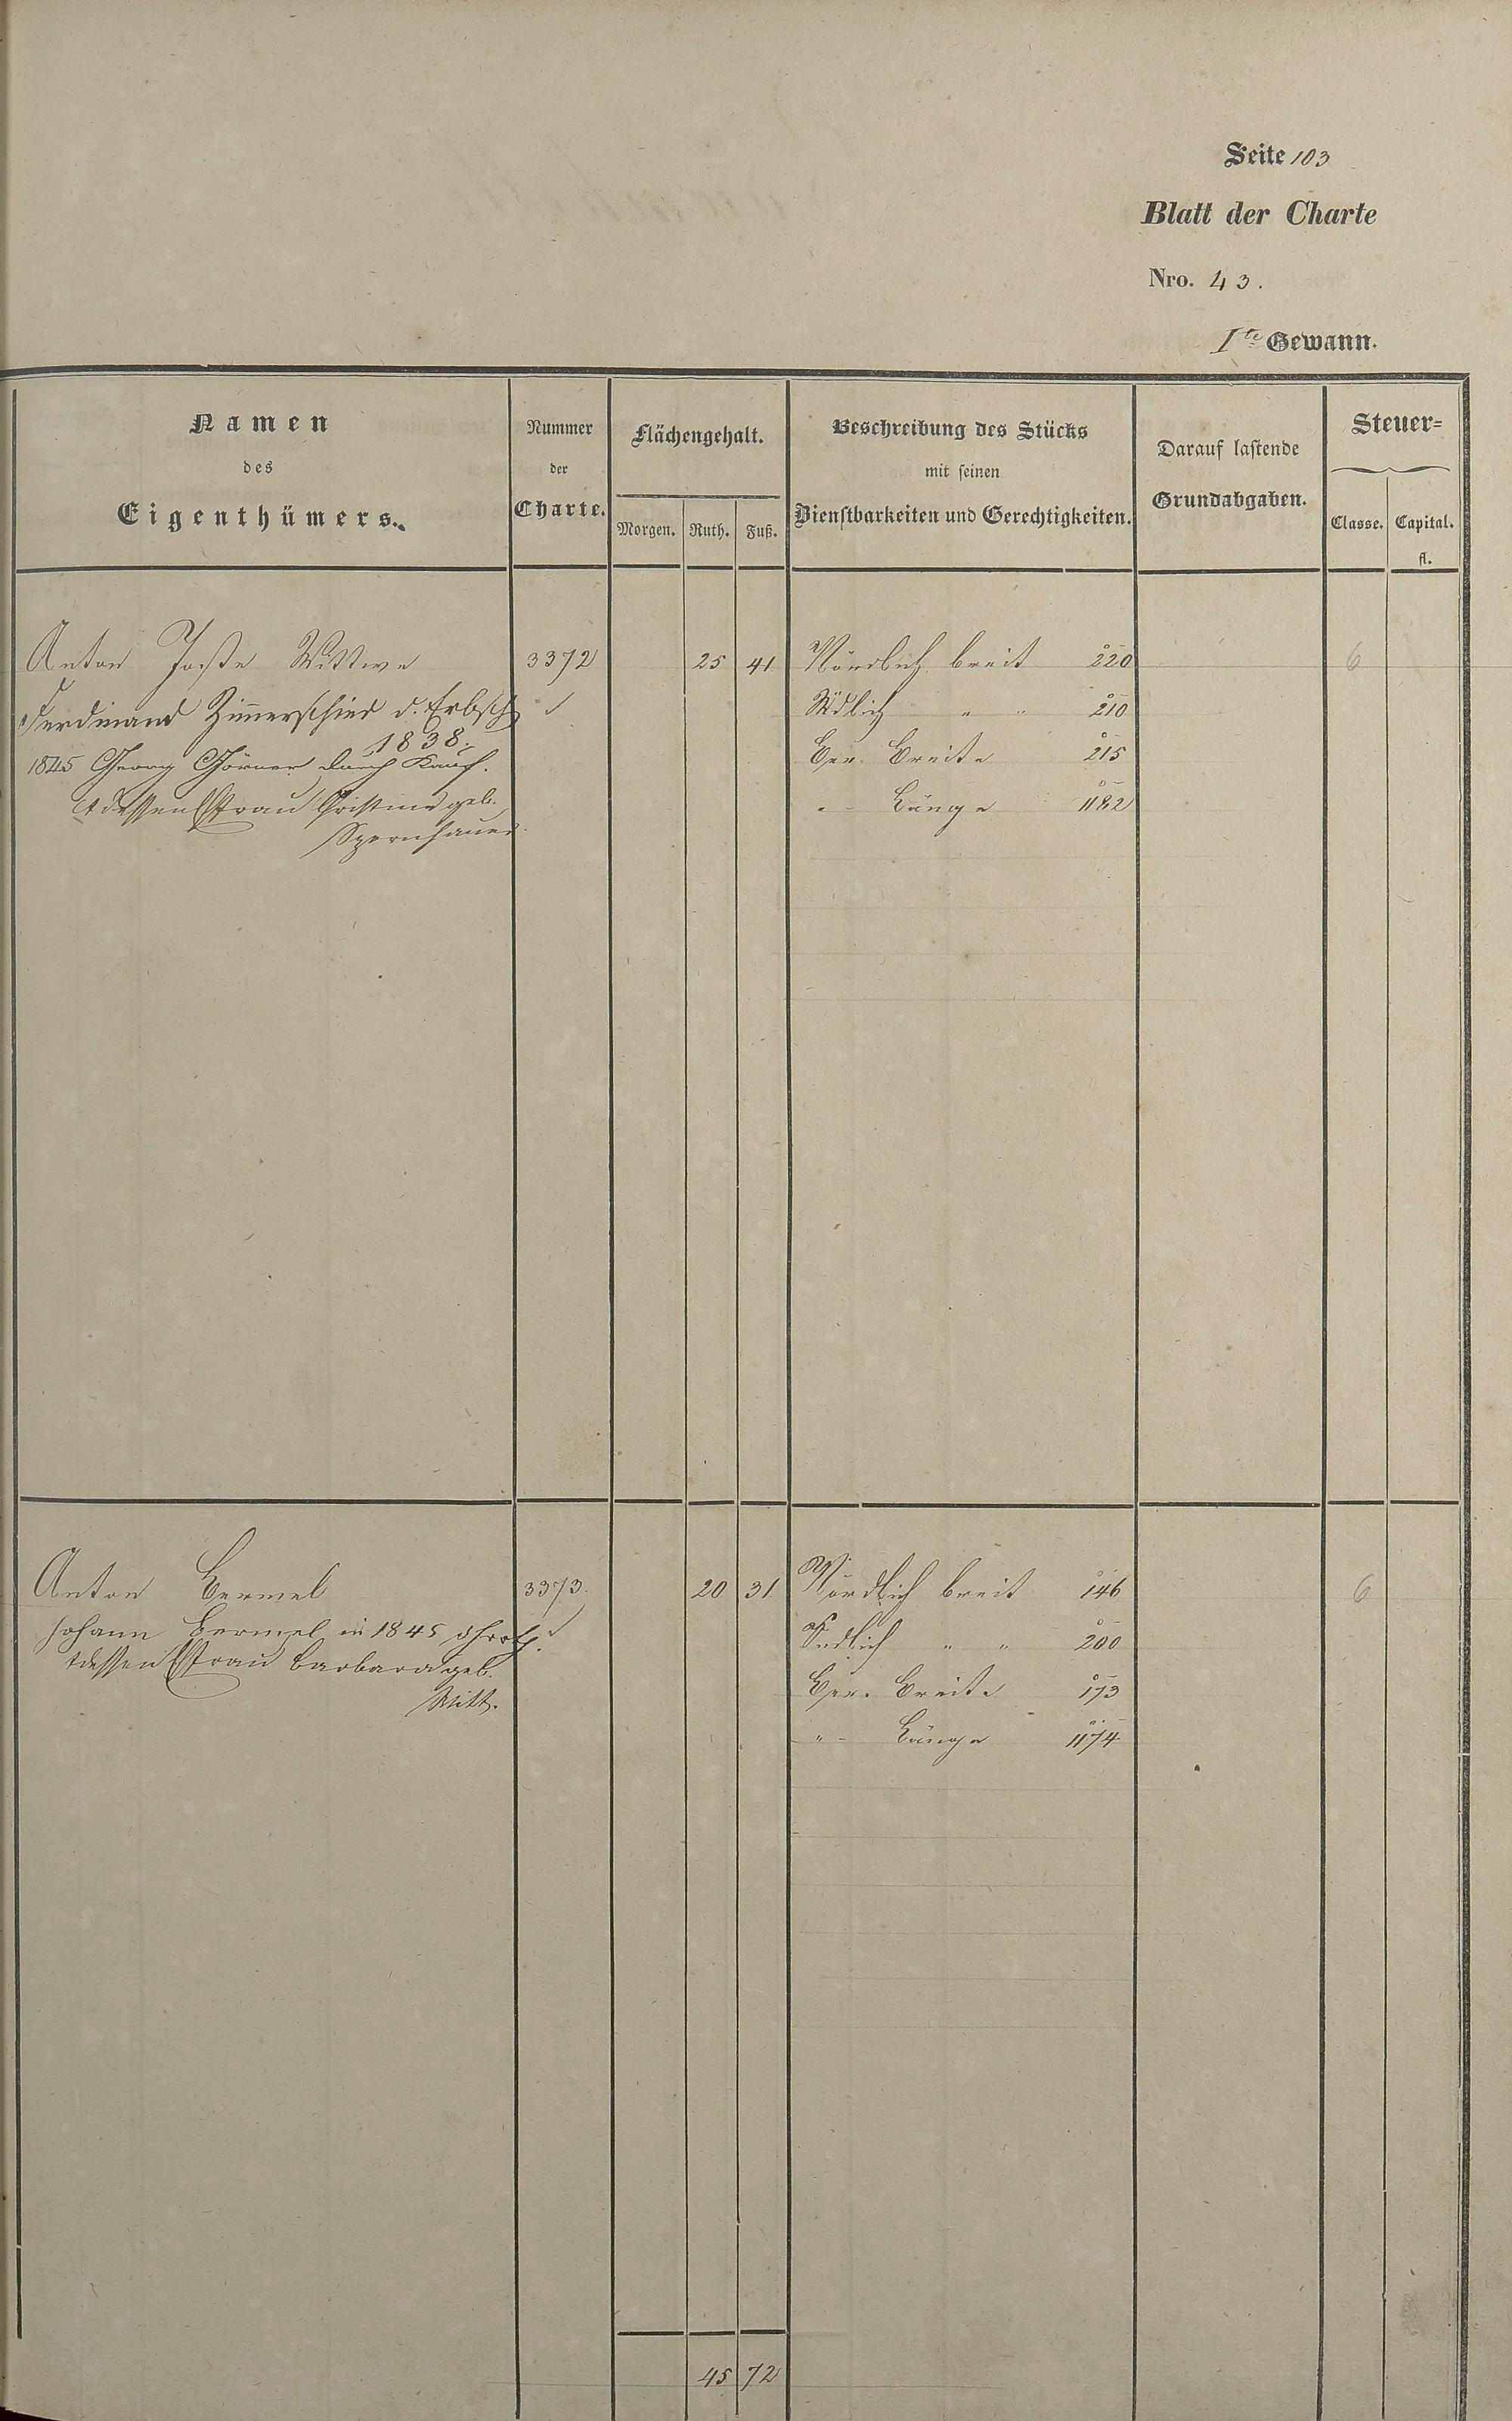 Seite 103
Blatt der Charte
Nro. 43.
Ite Gewann.
Namen des Eigenthümers.
Nummer der Charte.
Flächengehalt.
Morgen. Ruth. Fuß.
Beschreibung des Stücks mit seinen Dienstbarkeiten und Gerechtigkeiten.
Darauf lastende Grundabgaben.
Steuer=
Classe. Capital. fl.
Anton Wittwe 3372 25 41 Nördlich breit 220 6
Ferdinand Zimerschied d. Erbsch Südlich " " 210
1838.
1845 Georg Görner durch Kauf. Ger. Breite 215
& dessen Ehfrau Christine geb. " Länge 1182
Anton Bermel 3373. 20 31. Nördlich breit 146 6
Johann Bermel in 1845 Südlich " " 200
& dessen Ehfrau Barbara geb. Ger. Breite 173
Witt.
" Länge 1174
45 72